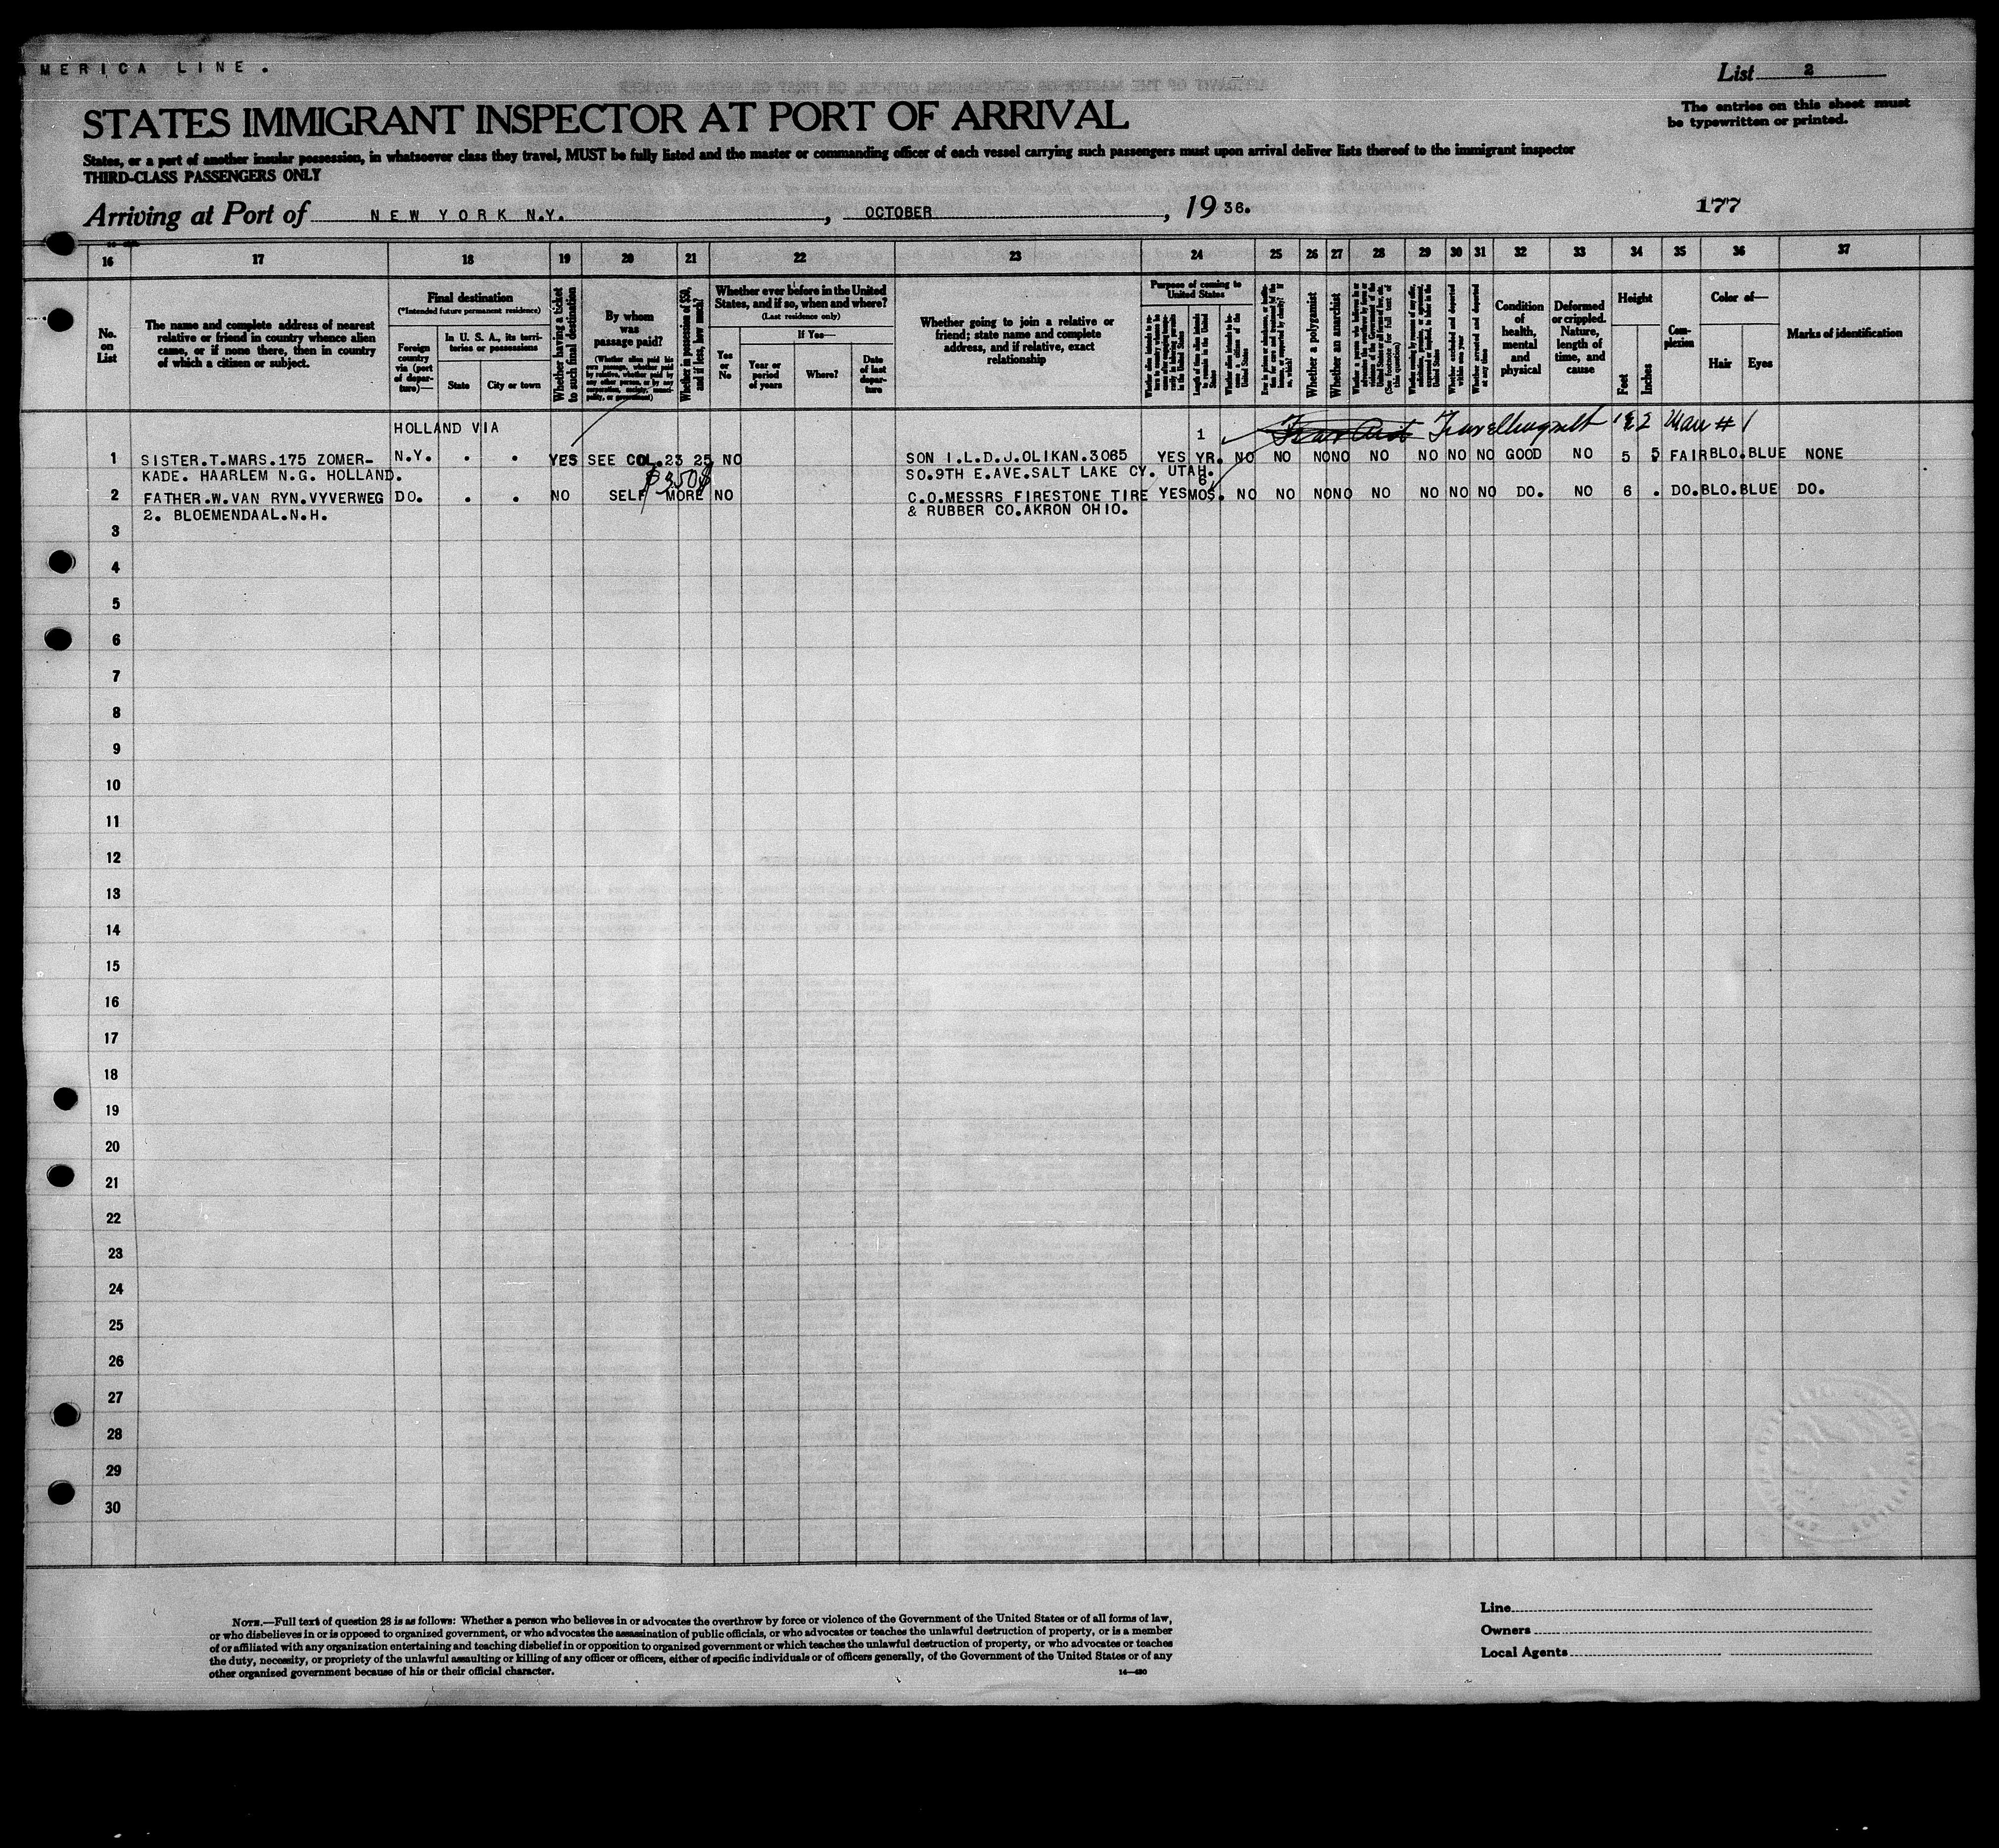 MERICA LINE.
List 2
STATES IMMIGRANT INSPECTOR AT PORT OF ARRIVAL
The entries on this sheet must
be typewritten or printed.
States, or a part of another insular possession, in whatsoever class they travel, MUST be fully listed and the master or commanding officer of each vessel carrying such passengers must upon arrival deliver lists thereof to the immigrant inspector
THIRD-CLASS PASSENGERS ONLY
Arriving at Port of NEW YORK N.Y., OCTOBER, 1936.
177
16 17 18 19 20 21 22 23 24 25 26 27 28 29 30 31 32 33 34 35 36 37
No.
on
List
The name and complete address of nearest
relative or friend in country whence alien
came, or if none there, then in country
of which a citizen or subject.
Final destination
(*Intended future permanent residence)
Foreign
country
via (port
of depar-
ture)—
In U. S. A., its terri-
tories or possessions
State
City or town
Whether having a ticket
to such final destination
By whom
was
passage paid?
(Whether alien paid his
own passage, whether paid
by relative, whether paid by
any other person, or by any
corporation, society, munici-
pality, or government)
Whether in possession of $50,
and if less, how much?
Whether ever before in the United
States, and if so, when and where?
(Last residence only)
Yes
or
No
If Yes—
Year or
period
of years
Where?
Date
of last
depar-
ture
Whether going to join a relative or
friend; state name and complete
address, and if relative, exact
relationship
Purpose of coming to
United States
Length of time alien intends
to remain in the United
States
Whether alien intends to be-
come a citizen of the
United States
Whether a polygamist
Whether an anarchist
Whether excluded and deported
within one year
Whether arrested and deported
at any time
Condition
of
health,
mental
and
physical
Deformed
or crippled.
Nature,
length of
time, and
cause
Height
Feet
Inches
Com-
plexion
Color of—
Hair
Eyes
Marks of identification
HOLLAND VIA
1
1 SISTER.T.MARS.175 ZOMER- N.Y. . . YES SEE COL.23 25 NO SON I.L.D.J.OLIKAN.3065 YES YR. NO NO NO NO NO NO NO NO GOOD NO 5 5 FAIR BLO. BLUE NONE
KADE. HAARLEM N.G. HOLLAND. SO.9TH E.AVE.SALT LAKE CY. UTAH.
6
2 FATHER.W.VAN RYN.VYVERWEG DO. . . NO SELF MORE NO C.O.MESSRS FIRESTONE TIRE YES MOS. NO NO NO NO NO NO NO NO DO. NO 6 . DO. BLO. BLUE DO.
2. BLOEMENDAAL.N.H. & RUBBER CO.AKRON OHIO.
3
4
5
6
7
8
9
10
11
12
13
14
15
16
17
18
19
20
21
22
23
24
25
26
27
28
29
30
NOTE.—Full text of question 28 is as follows: Whether a person who believes in or advocates the overthrow by force or violence of the Government of the United States or of all forms of law,
or who disbelieves in or is opposed to organized government, or who advocates the assassination of public officials, or who advocates or teaches the unlawful destruction of property, or is a member
of or affiliated with any organization entertaining and teaching disbelief in or opposition to organized government or which teaches the unlawful destruction of property, or who advocates or teaches
the duty, necessity, or propriety of the unlawful assaulting or killing of any officer or officers, either of specific individuals or of officers generally, of the Government of the United States or of any
other organized government because of his or their official character.
14—480
Line
Owners
Local Agents